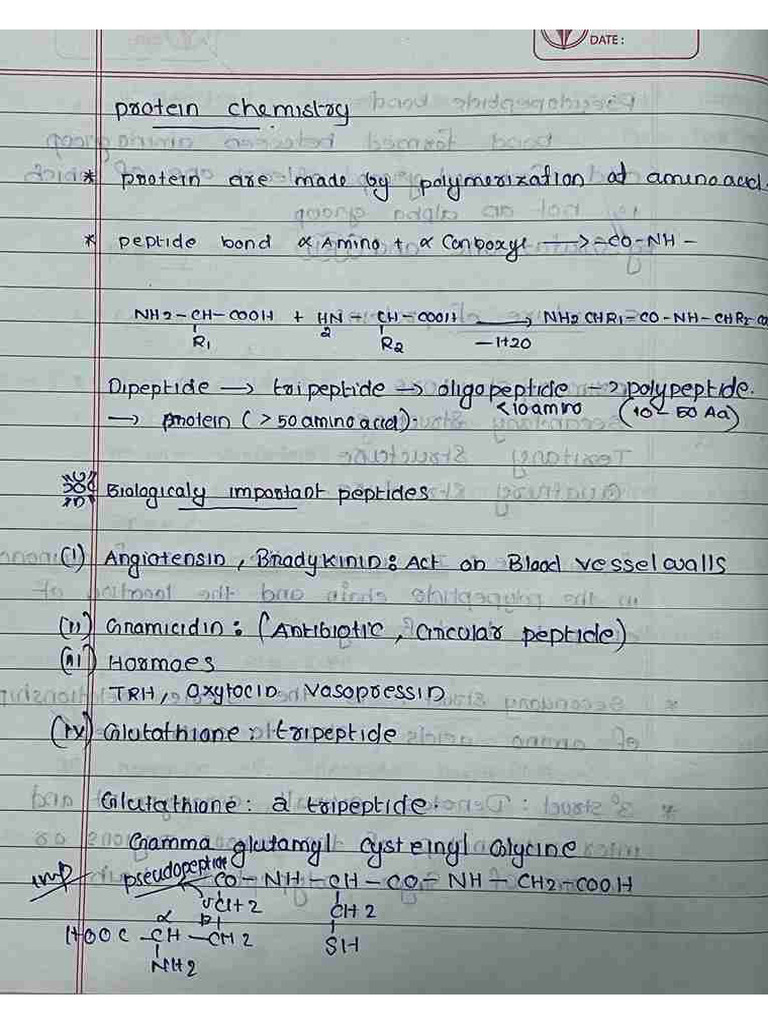 DATE:
protein chemistry
* protein are made by polymerization of amino acid.
* peptide bond α Amino + α Carboxyl —> -CO-NH-
NH2-CH-COOH + HN-CH-COOH —> NH2 CHR1-CO-NH-CHR2-CO
R1 2 R2 -H2O
Dipeptide —> tripeptide —> oligopeptide —> polypeptide.
<10 amino (10-50 AA)
—> protein (>50 amino acid).
Biologicaly important peptides
(i) Angiotensin, Bradykinin: Act on Blood vessel walls
(ii) Gramicidin: (Antibiotic, Circular peptide)
(iii) Hormoes
TRH, Oxytocin Vasopressin
(iv) Glutathione: tripeptide
Glutathione: a tripeptide.
Gamma glutamyl cysteinyl Glycine
imp pseudopeptide CO-NH-CH-CO-NH-CH2-COOH
γCH2 CH2
HOOC-CH-CH2 SH
α β
NH2